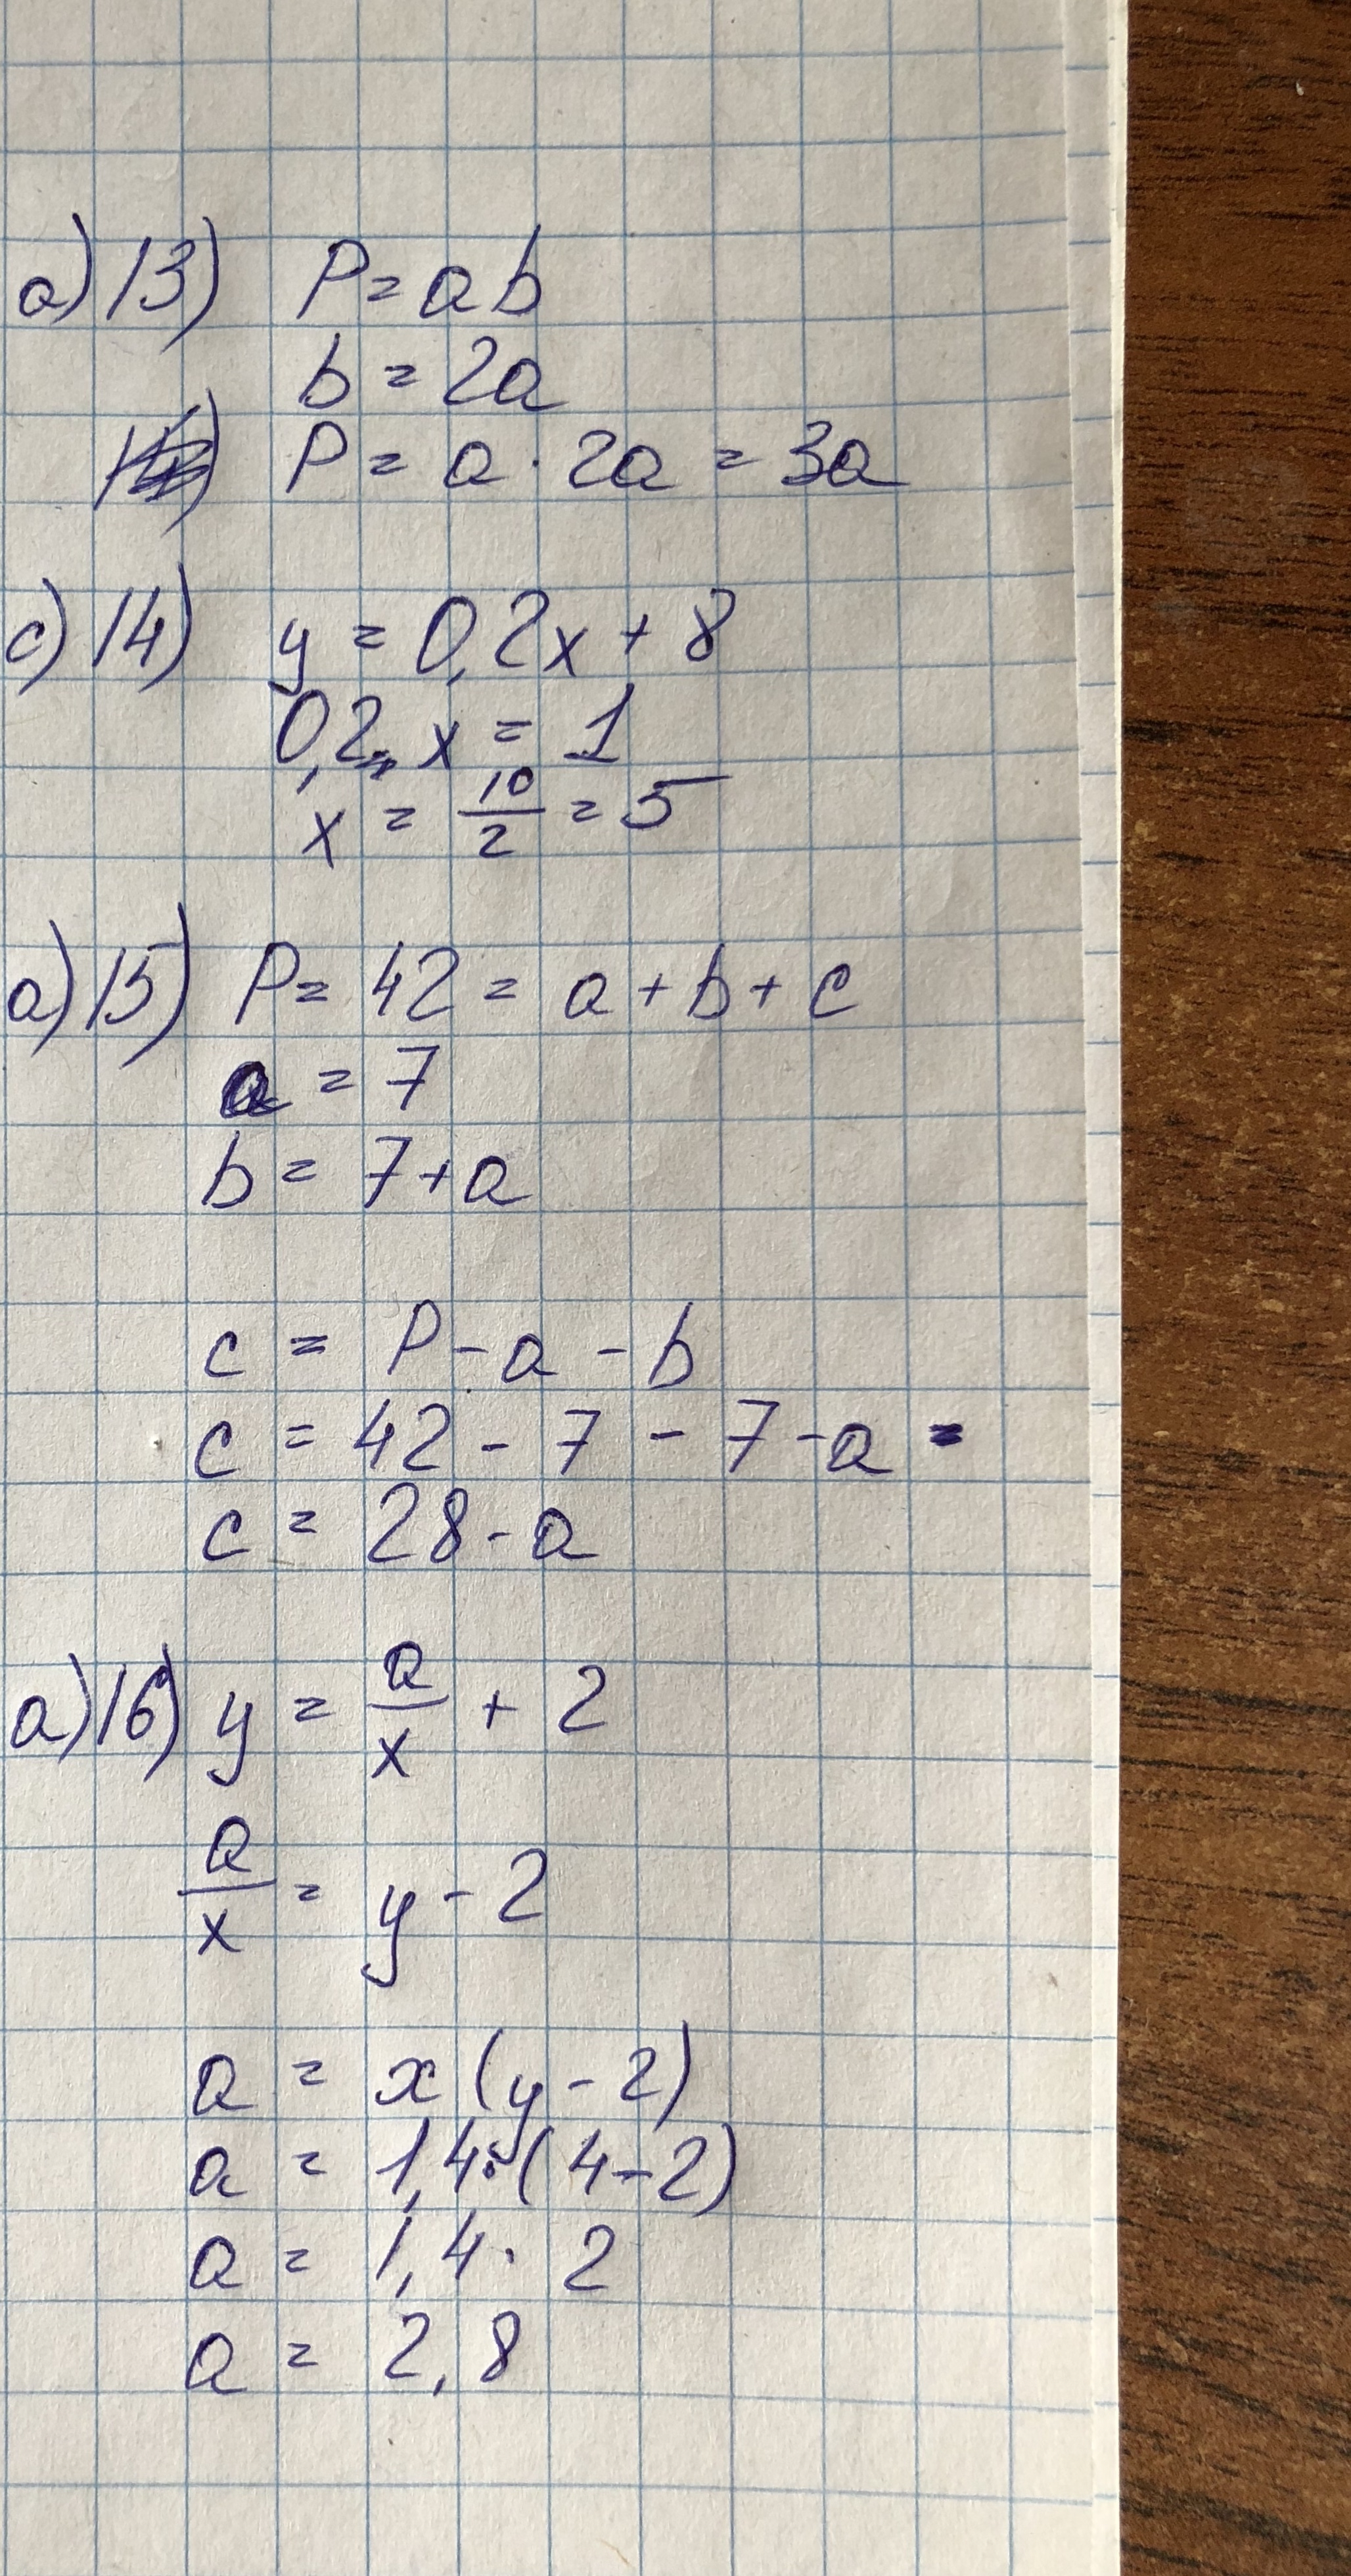 a) 13) P = ab
b = 2a
P = a · 2a = 3a
c) 14) y = 0,2x + 8
0,2 x = 1
x = 10/2 = 5
a) 15) P = 42 = a + b + c
a = 7
b = 7 + a
c = P - a - b
c = 42 - 7 - 7 - a =
c = 28 - a
a) 16) y = a/x + 2
a/x = y - 2
a = x (y - 2)
a = 1,4 · (4 - 2)
a = 1,4 · 2
a = 2,8